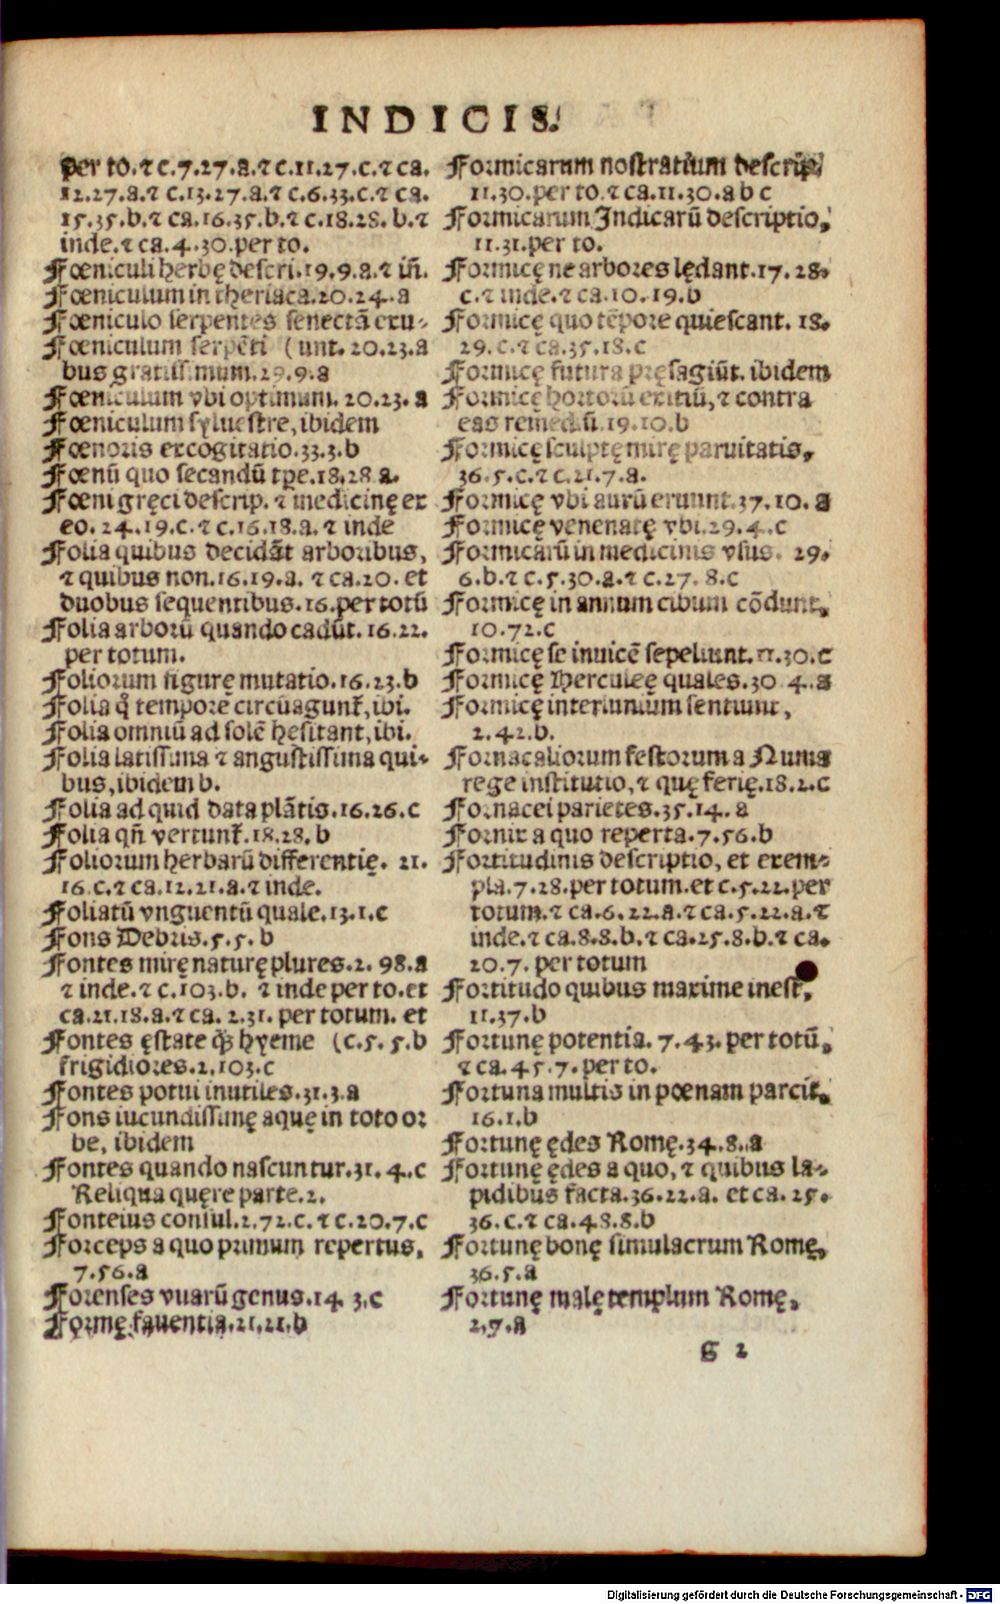 INDICIS.
per to. ⁊ c.7.27.a.⁊ c.11.27.c.⁊ ca.
12.27.a.⁊ c.13.27.a.⁊ c.6.33.c.⁊ ca.
15.35.b.⁊ ca.16.35.b.⁊ c.18.28.b.⁊
inde.⁊ ca.4.30.per to.
Fœniculi herbę descri.19.9.a.⁊ iñ.
Fœniculum in theriaca.20.24.a
Fœniculo serpentes senectā exu-
Fœniculum serpēti (unt.20.23.a
bus gratissimum.29.9.a
Fœniculum vbi optimum. 20.23.a
Fœniculum syluestre, ibidem
Fœnoris excogitatio.33.3.b
Fœnū quo secandū tpe.18.28 a.
Fœni gręci descrip. ⁊ medicinę ex
eo. 24.19.c.⁊ c.16.18.a.⁊ inde
Folia quibus decidāt arboribus,
⁊ quibus non.16.19.a. ⁊ ca.20. et
duobus sequentibus.16.per totū
Folia arborū quando cadūt.16.22.
per totum.
Foliorum figurę mutatio.16.23.b
Folia q̊ tempore circūagunt̃, ibi.
Folia omniū ad solē hesitant, ibi.
Folia latissima ⁊ angustissima qui-
bus, ibidem b.
Folia ad quid data plātis.16.26.c
Folia qñ vertunt̃.18.28.b
Foliorum herbarū differentię. 21.
16.c.⁊ ca.12.21.a.⁊ inde.
Foliatū vnguentū quale.13.1.c
Fons Debris.5.5.b
Fontes mirę naturę plures.2. 98.a
⁊ inde.⁊ c.103.b. ⁊ inde per to.et
ca.21.18.a.⁊ ca. 2.31. per totum. et
Fontes ęstate q̃ hyeme (c.5. 5.b
frigidiores.2.103.c
Fontes potui inutiles.31.3.a
Fons iucundissimę aquę in toto or
be, ibidem
Fontes quando nascuntur.31. 4.c
Reliqua quęre parte.2.
Fonteius consul.2.72.c. ⁊ c.20.7.c
Forceps a quo primum repertus,
7.56.a
Forenses vuarū genus.14 3.c
Formę fauentia.21.21.b
Formicarum nostratium descrip.
11.30.per to.⁊ ca.11.30.a b c
Formicarum Indicarū descriptio,
11.31.per to.
Formicę ne arbores lędant.17.28.
c.⁊ inde.⁊ ca.10.19.b
Formicę quo tēpore quiescant. 18.
29.c.⁊ ca.35.18.c
Formicę futura pręsagiūt. ibidem
Formicę hortorū exitiū, ⁊ contra
eas remediū.19.10.b
Formicę sculptę mirę paruitatis,
36.5.c.⁊ c.21.7.a.
Formicę vbi aurū eruunt.37.10.a
Formicę venenatę vbi.29.4.c
Formicarū in medicinis vsus. 29.
6.b.⁊ c.5.30.a.⁊ c.27. 8.c
Formicę in annum cibum cōdunt,
10.72.c
Formicę se inuicē sepeliunt.11.30.c
Formicę Herculeę quales.30 4.a
Formicę interlunium sentiunt,
2.42.b.
Fornacaliorum festorum a Numa
rege institutio, ⁊ quę ferię.18.2.c
Fornacei parietes.35.14.a
Fornix a quo reperta.7.56.b
Fortitudinis descriptio, et exem-
pla.7.28.per totum.et c.5.22.per
totum.⁊ ca.6.22.a.⁊ ca.5.22.a.⁊
inde.⁊ ca.8.8.b.⁊ ca.25.8.b.⁊ ca.
20.7. per totum
Fortitudo quibus maxime inest,
11.37.b
Fortunę potentia. 7.43.per totū,
⁊ ca.45.7.per to.
Fortuna multis in pœnam parcit.
16.1.b
Fortunę ędes Romę.34.8.a
Fortunę ędes a quo, ⁊ quibus la-
pidibus facta.36.22.a. et ca. 25.
36.c.⁊ ca.48.8.b
Fortunę bonę simulacrum Romę,
36.5.a
Fortunę malę templum Romę,
2.7.a
G 2
Digitalisierung gefördert durch die Deutsche Forschungsgemeinschaft - DFG